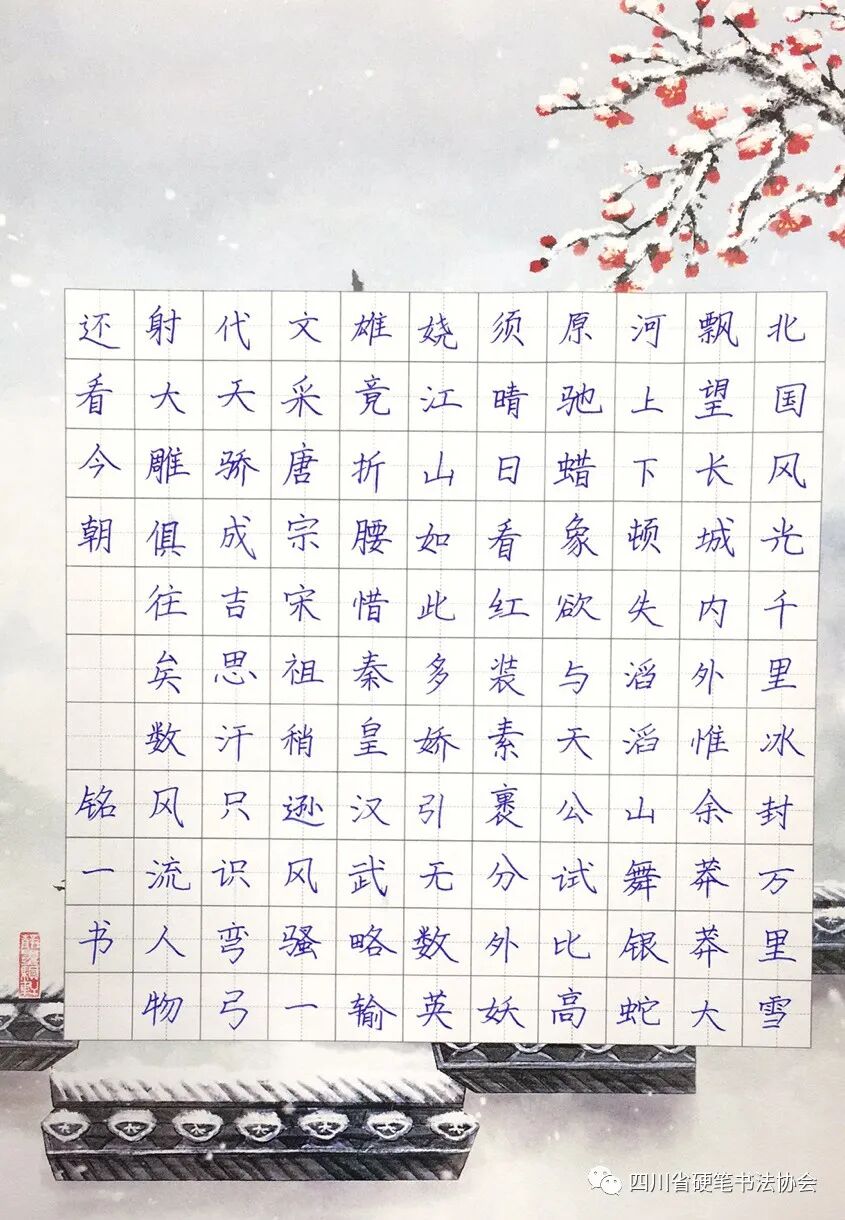 北国风光千里冰封万里雪
飘望长城内外惟余莽莽大
河上下顿失滔滔山舞银蛇
原驰蜡象欲与天公试比高
须晴日看红装素裹分外妖
娆江山如此多娇引无数英
雄竟折腰惜秦皇汉武略输
文采唐宗宋祖稍逊风骚一
代天骄成吉思汗只识弯弓
射大雕俱往矣数风流人物
还看今朝
铭一书
四川省硬笔书法协会